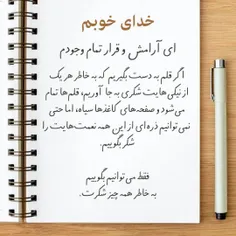 خدای خوبم
ای آرامش و قرار تمام وجودم
اگر قلم به دست بگیریم که به خاطر هر یک
از نیکی‌هایت شکری به جا آوریم، قلم‌ها تمام
می‌شود و صفحه‌های کاغذها سیاه، اما حتی
نمی‌توانیم ذره‌ای از این همه نعمت‌هایت را
شکر بگوییم.
فقط می‌توانیم بگوییم
به خاطر همه چیز شکرت.